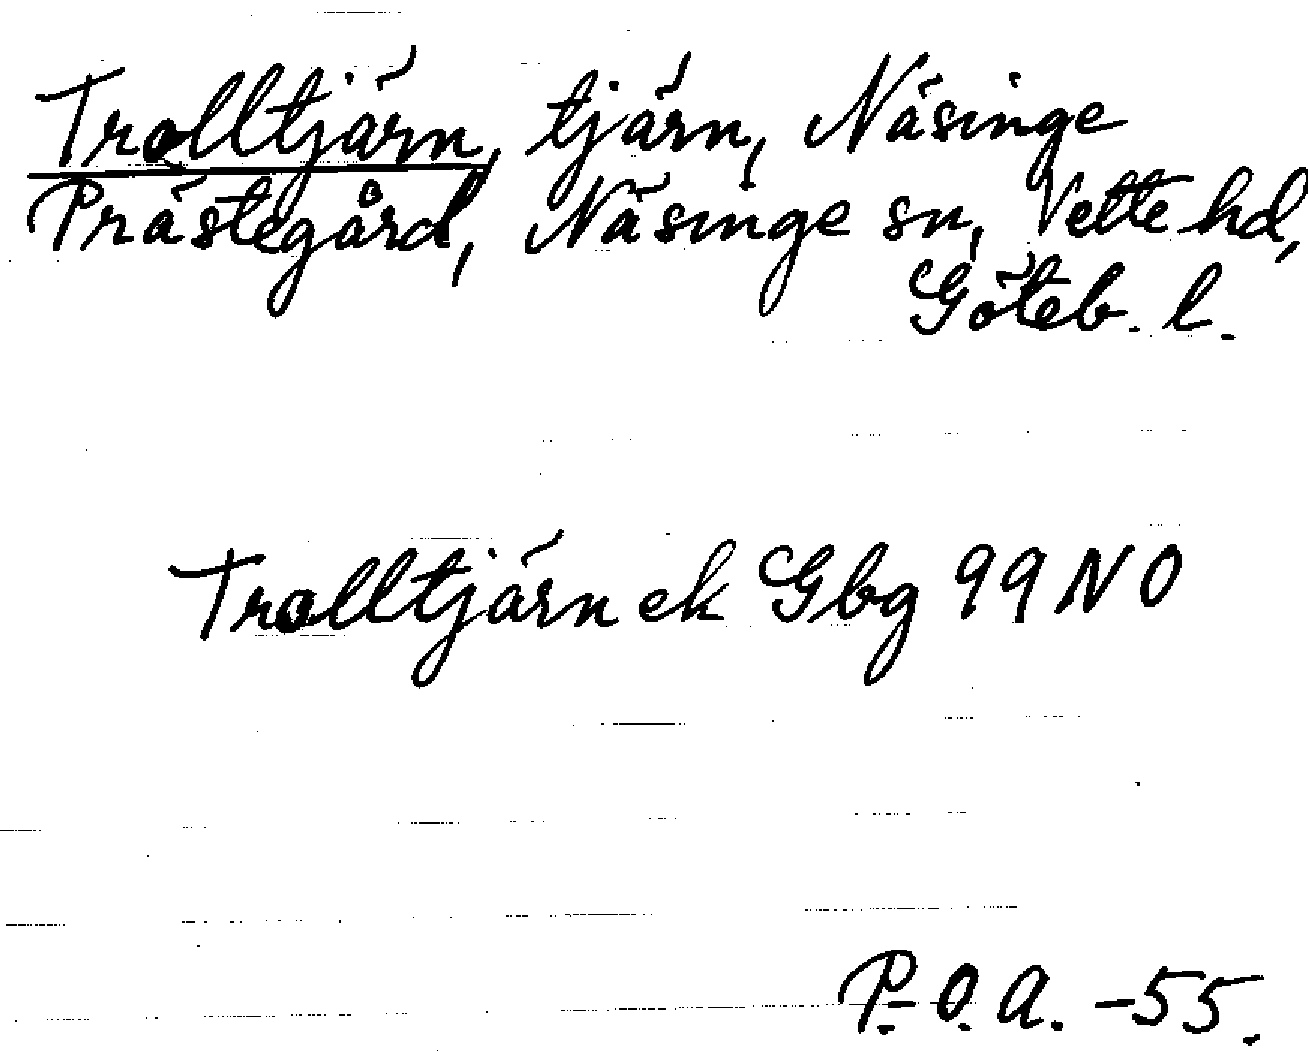 Trolltjärn, tjärn, Näsinge
Prästegård, Näsinge sn, Vette hd,
Göteb. l.
Trolltjärn ek Gbg 99 NO
P. O. A. -55.